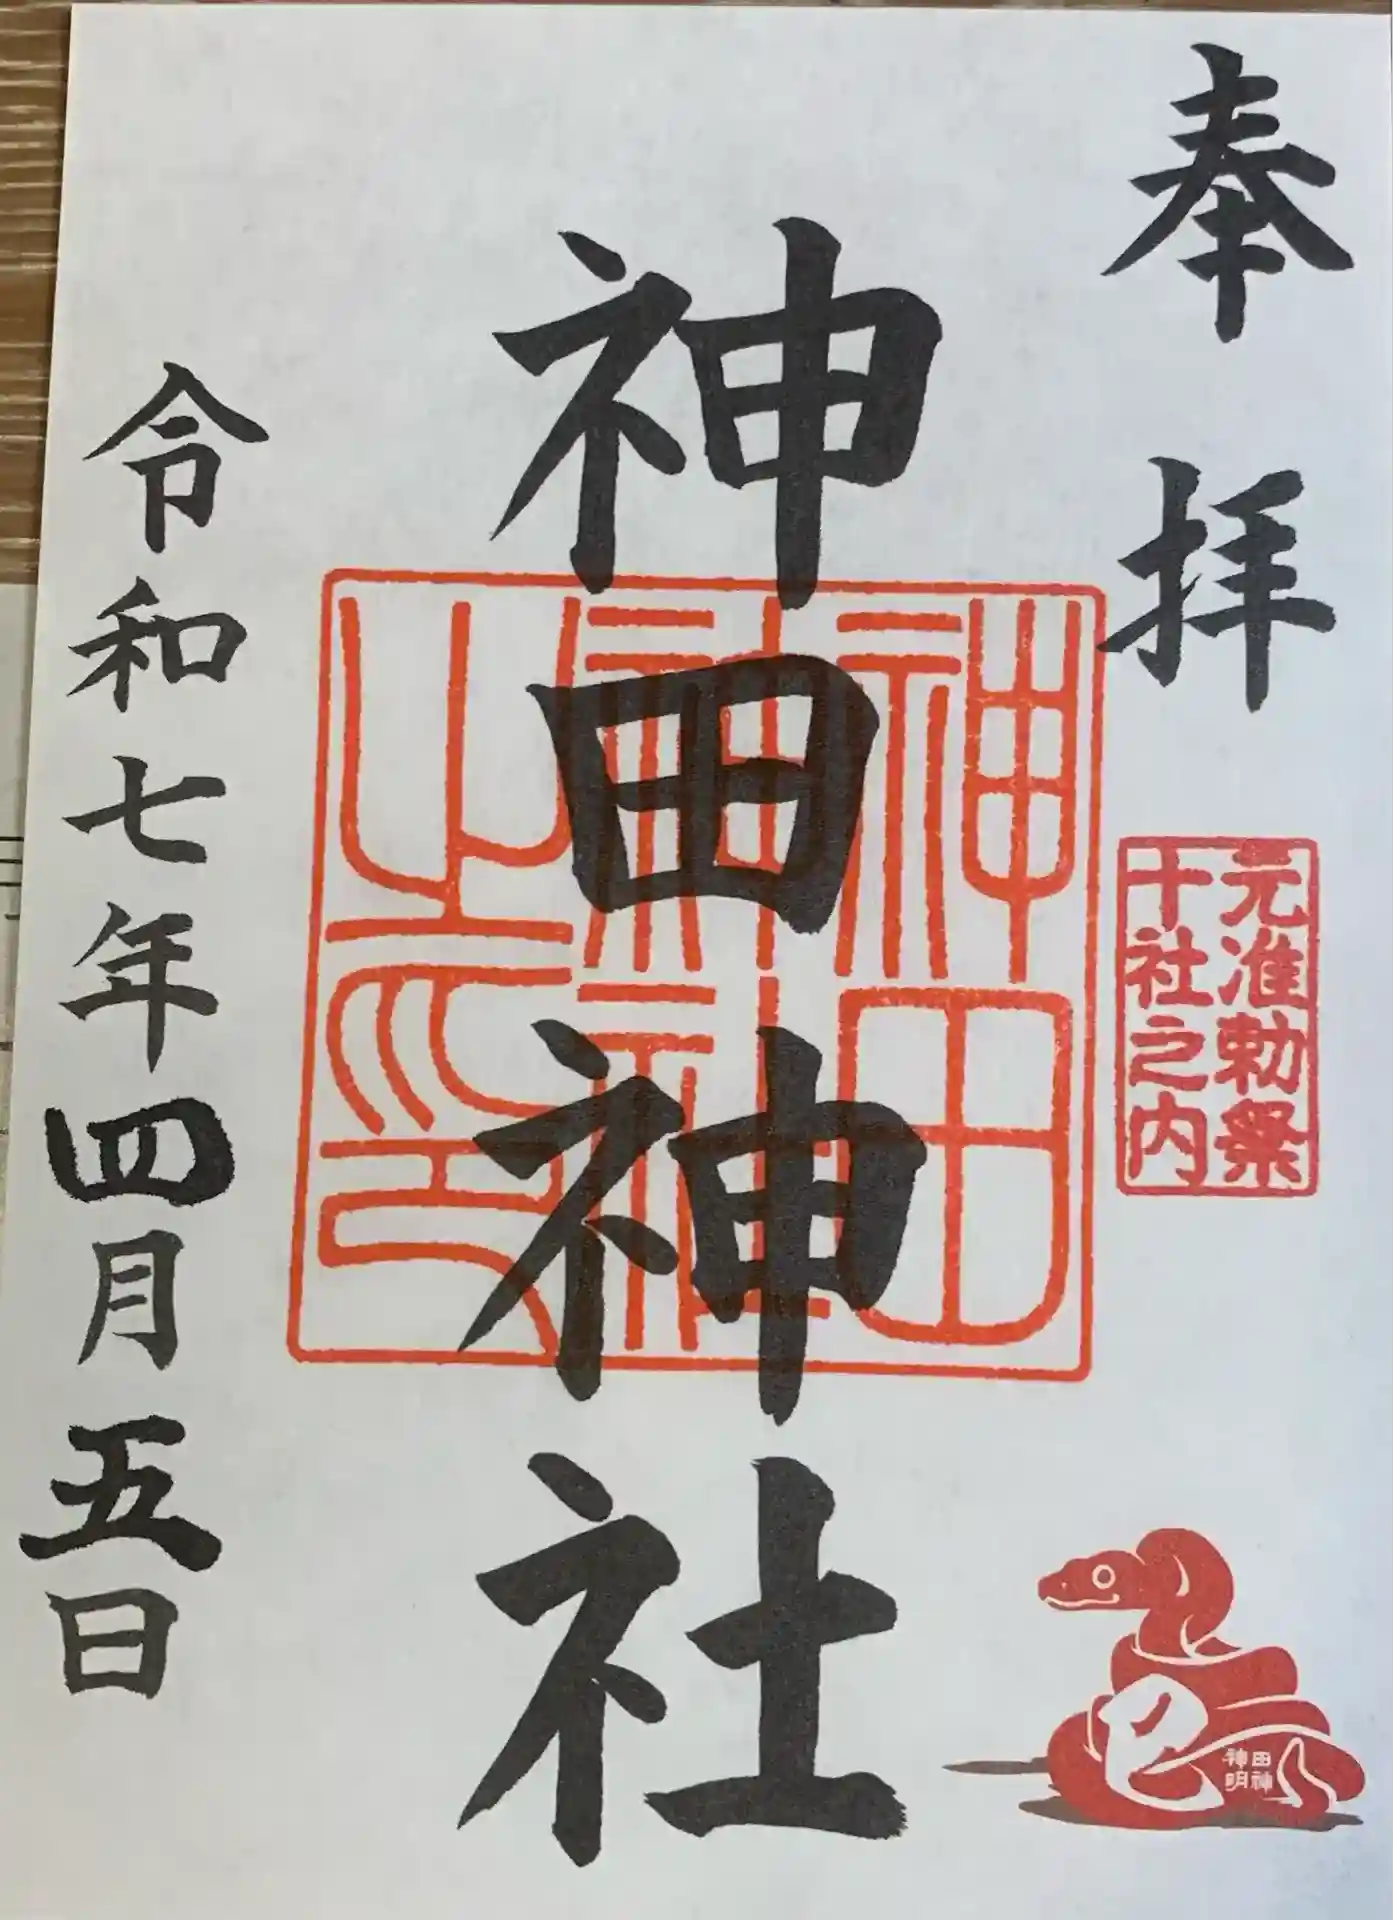 奉拝
元准勅祭
十社之内
神田神社
神田
神社
之印
令和七年四月五日
巳
田神
神明